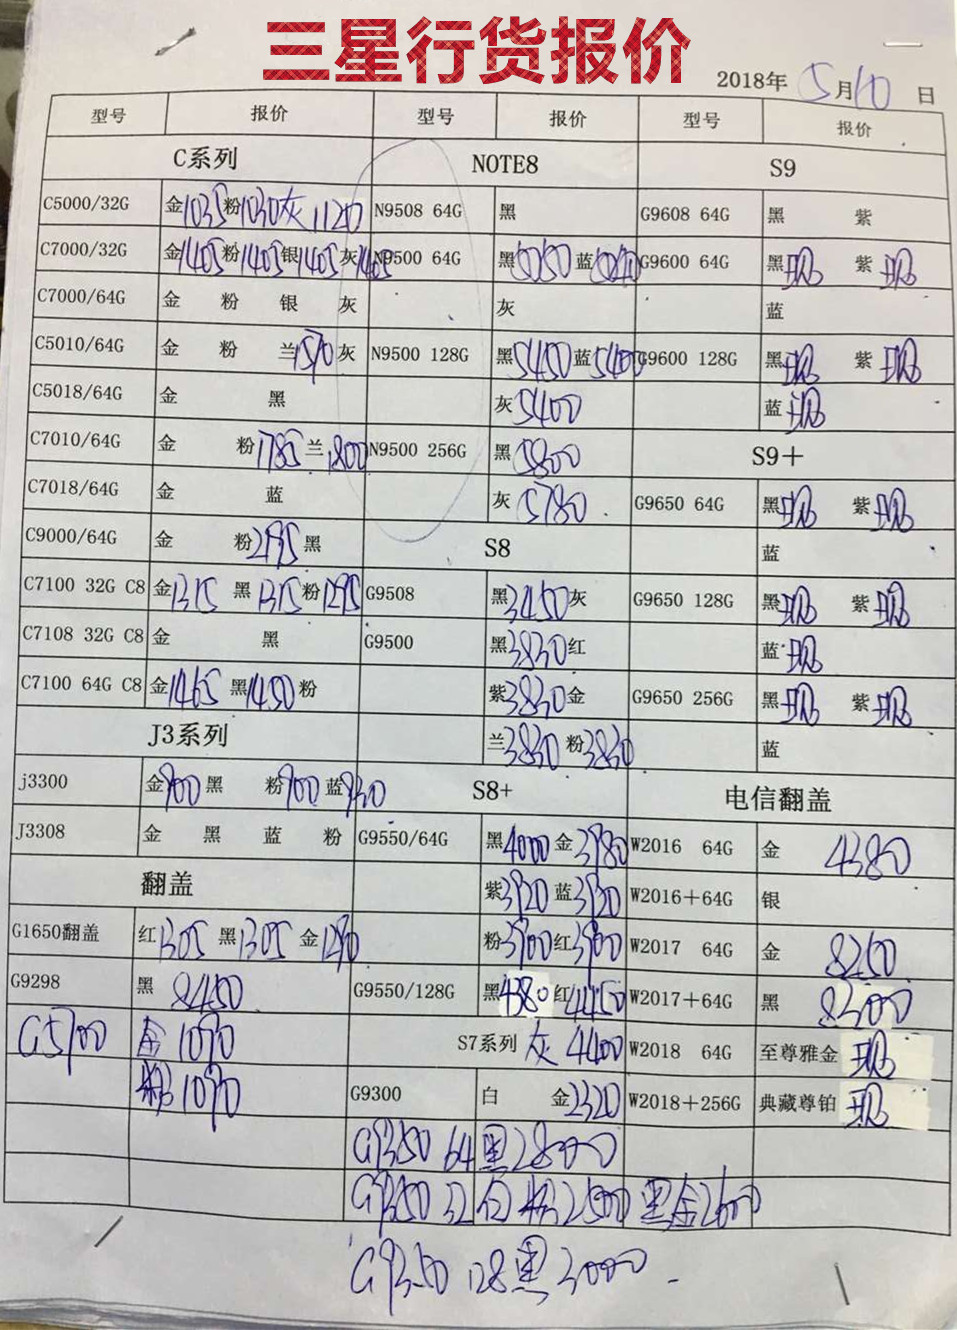 三星行货报价
2018年 5月10日
型号 报价 型号 报价 型号 报价
C系列 NOTE8 S9
C5000/32G 金1035 粉1030 灰1120 N9508 64G 黑 G9608 64G 黑 紫
C7000/32G 金1405 粉1405 银1405 灰1405 N9500 64G 黑5050 蓝5040 G9600 64G 黑现 紫现
C7000/64G 金 粉 银 灰 灰 蓝
C5010/64G 金 粉 兰1570 灰 N9500 128G 黑5450 蓝5400 G9600 128G 黑现 紫现
C5018/64G 金 黑 灰5400 蓝现
C7010/64G 金 粉1785 兰1800 N9500 256G 黑5800 S9+
C7018/64G 金 蓝 灰5780 G9650 64G 黑现 紫现
C9000/64G 金 粉2195 黑 S8 蓝
C7100 32G C8 金1315 黑1315 粉1295 G9508 黑3450 灰 G9650 128G 黑现 紫现
C7108 32G C8 金 黑 G9500 黑3830 红 蓝现
C7100 64G C8 金1465 黑1450 粉 紫3830 金 G9650 256G 黑现 紫现
J3系列 兰3830 粉3830 蓝
j3300 金900 黑 粉900 蓝930 S8+ 电信翻盖
J3308 金 黑 蓝 粉 G9550/64G 黑4000 金3980 W2016 64G 金 4380
翻盖 紫3920 蓝3920 W2016+64G 银
G1650翻盖 红1305 黑1305 金1290 粉3900 红3900 W2017 64G 金 8250
G9298 黑 8450 G9550/128G 黑4380 红4450 W2017+64G 黑 8300
G5700 金1090 S7系列 灰 4400 W2018 64G 至尊雅金 现
粉1090 G9300 白 金2320 W2018+256G 典藏尊铂 现
G9350 64 黑2800
G9350 32 白 粉2500 黑金2600
G9350 128黑3000